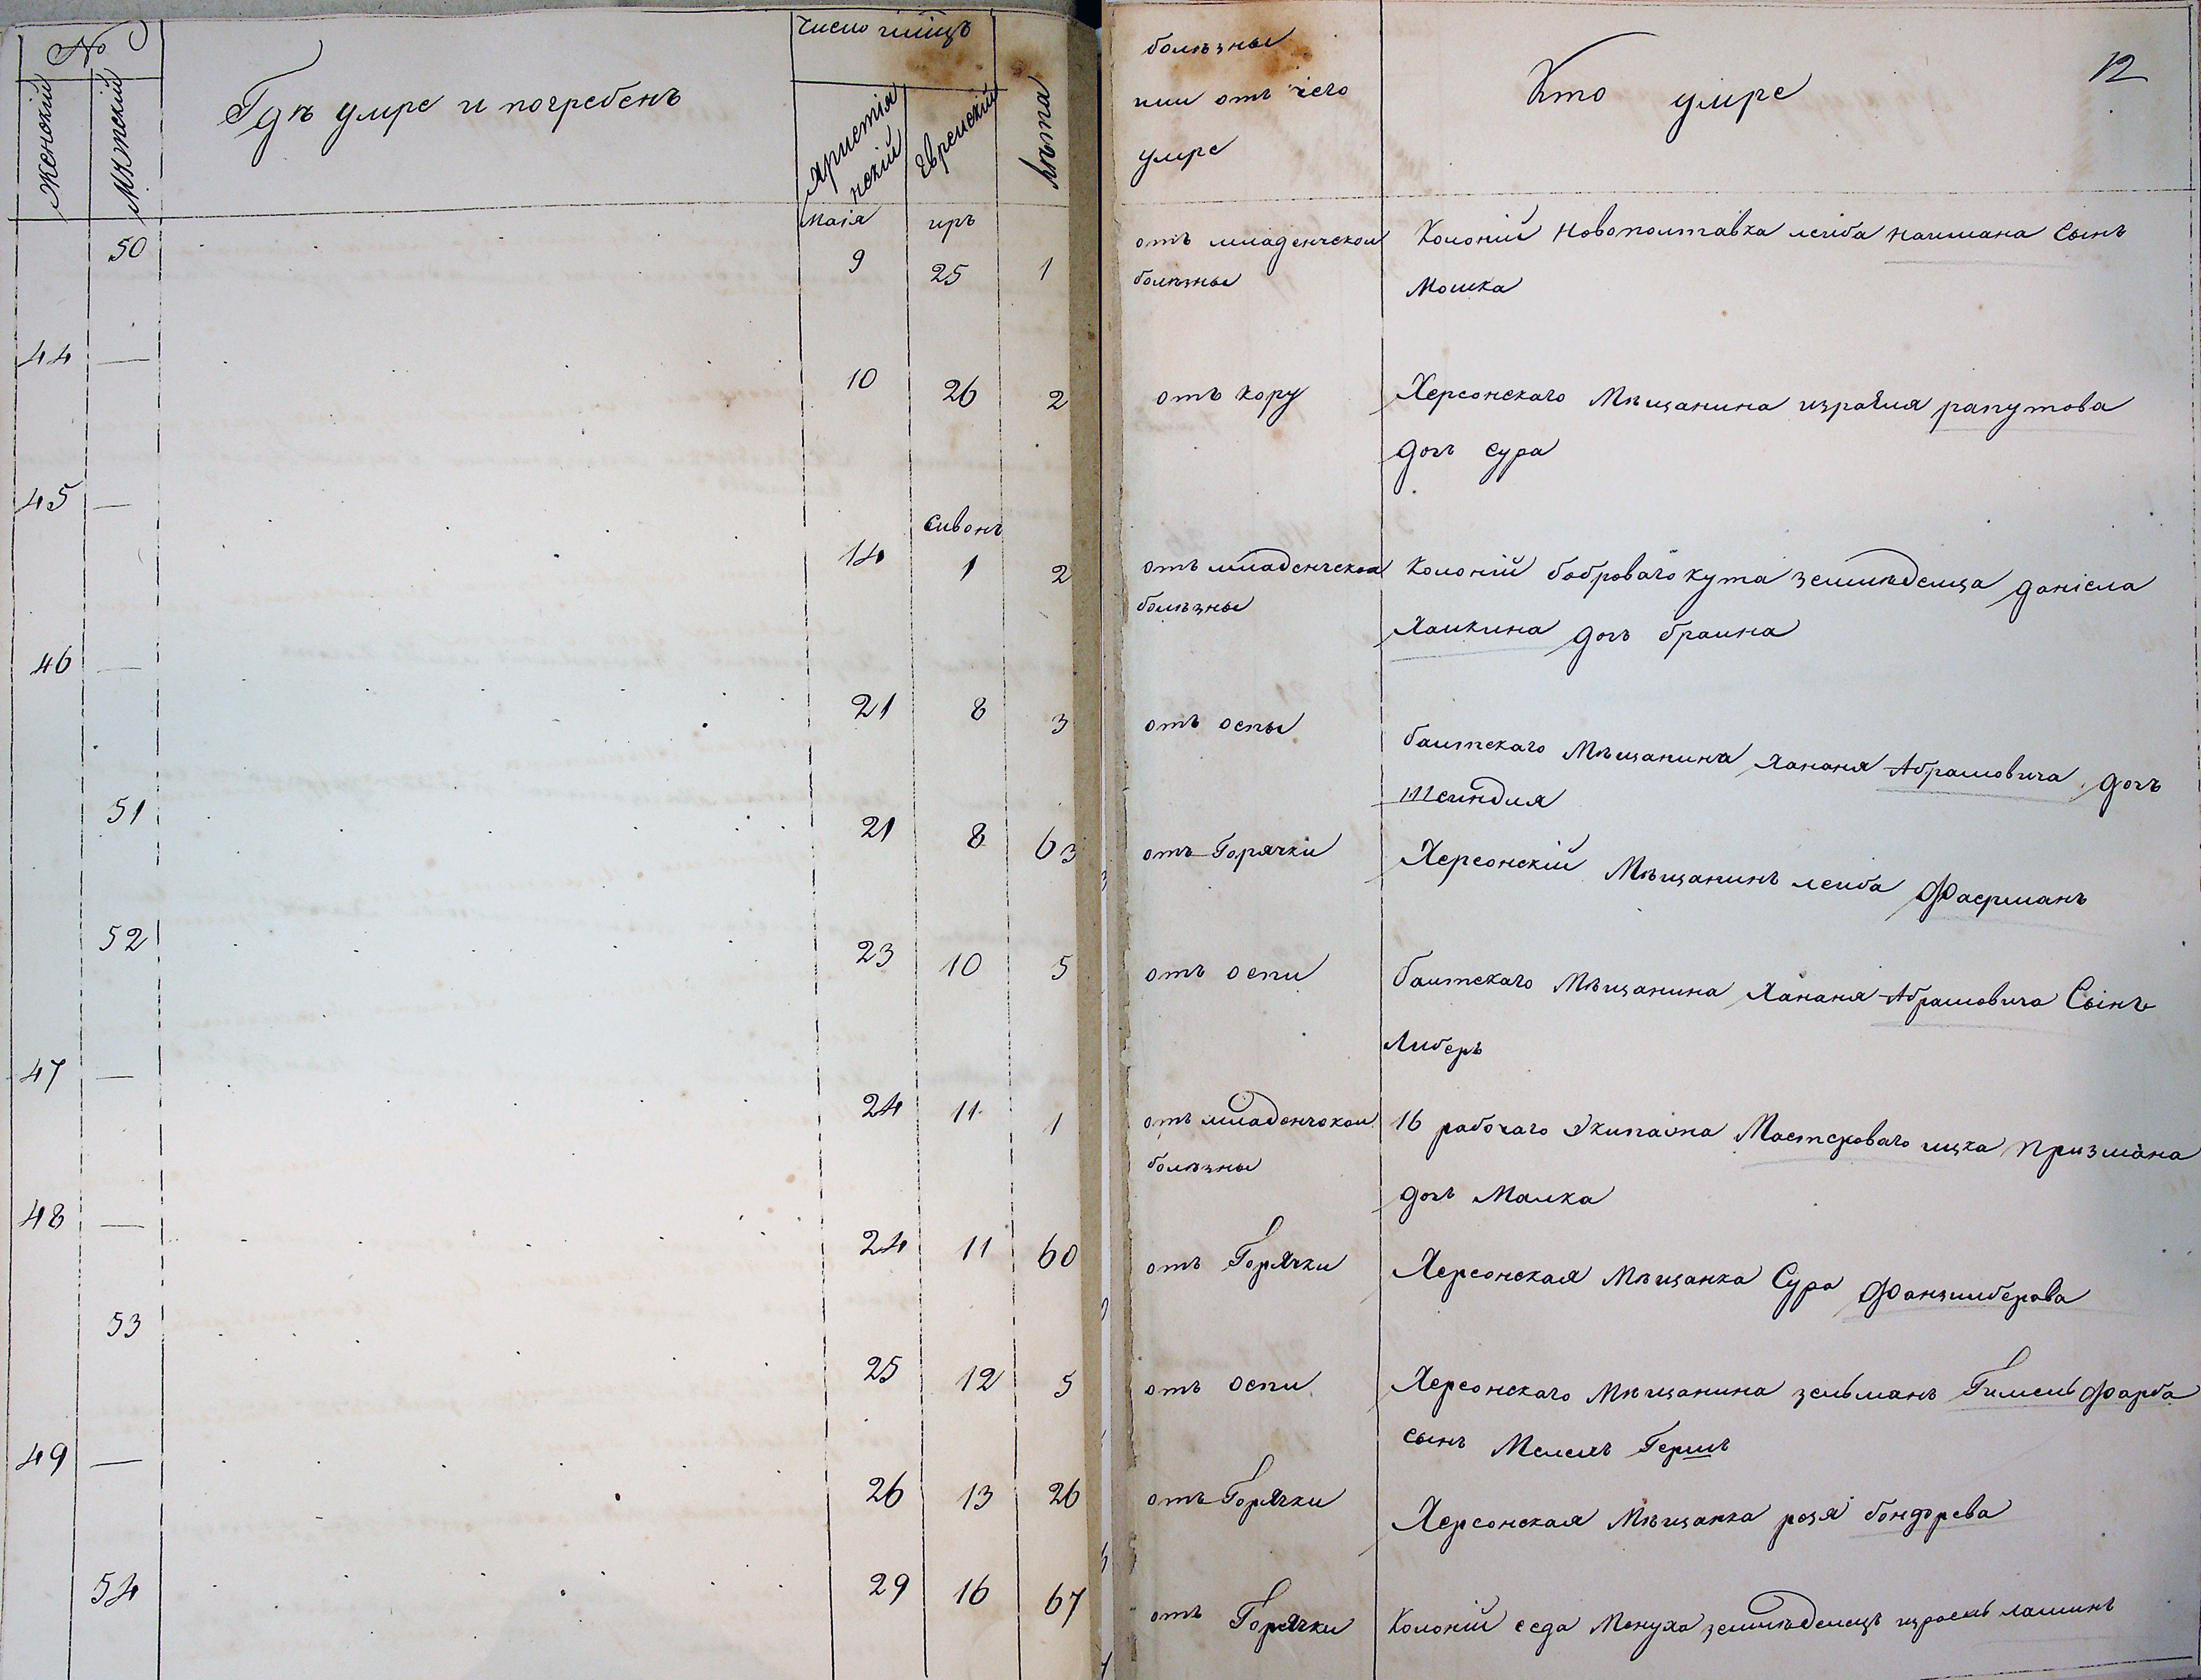 №
Женскій
Мужескій
Гдѣ умре и погребенъ
Число мѣсяцъ
Христіянскій
Еврейскій
Лѣта
болѣзны или отъ чего умре
Кто умре
12
Маія
иръ
50
9
25
1
отъ младенческои болѣзны
Колоній Новополтавка леиба наимана Сынъ
Мошка
44
—
10
26
2
отъ кору
Херсонскаго Мѣщанина израиля рапутова
дочь Сура
45
—
Сивонъ
14
1
2
отъ младенческои болѣзны
Колоній боброваго кута земледелца даніела
Хаикина дочь браина
46
—
21
8
3
отъ оспы
балтскаго Мѣщанина Хананя Абрамовича дочь
Шеиндля
51
21
8
63
отъ Горячки
Херсонскій Мѣщанинъ леиба Фаерманъ
52
23
10
5
отъ оспи
балтскаго Мѣщанина Хананя Абрамовича Сынъ
Либеръ
47
—
24
11
1
отъ младенческои болѣзны
16 рабочаго Экипажа Мастероваго ицка призмана
дочь Малка
48
—
24
11
60
отъ Горячки
Херсонская Мѣщанка Сура Фанзилберова
53
25
12
5
отъ оспи
Херсонскаго Мѣщанина зельманъ Гимель Фарба
сынъ Мелехъ Гершъ
49
—
26
13
26
отъ Горячки
Херсонская Мѣщанка розя бондорева
54
29
16
67
отъ Горячки
Колоній седа Менуха земледелецъ израель лашинъ